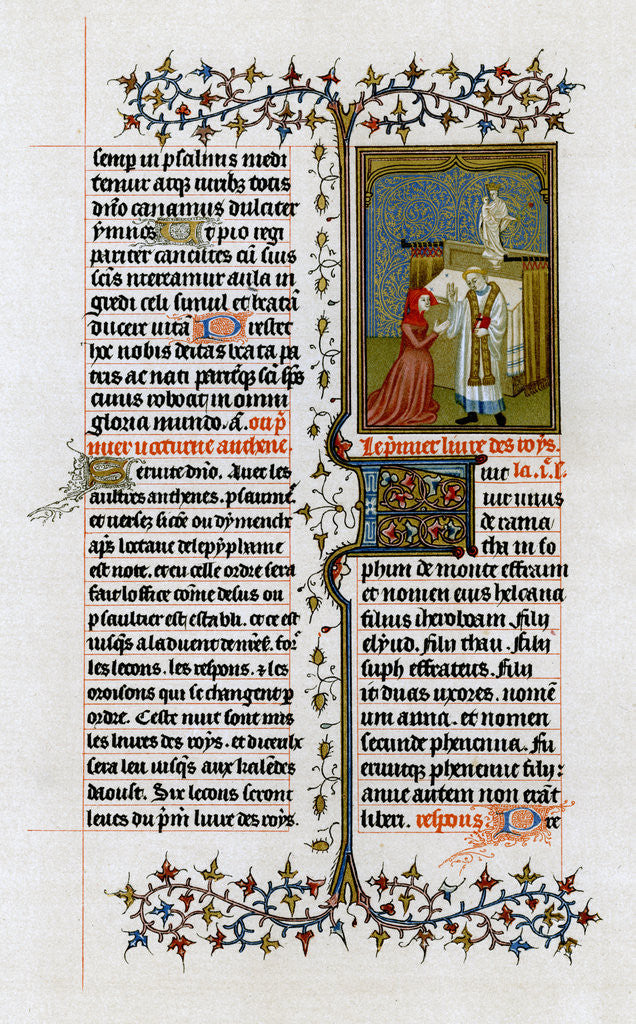 semp in psalmis medi
temur atq viribz totis
dño canamus dulciter
ymnos Ut pio regi
pariter canẽtes cũ suis
scĩs mereamur aula in
gredi celi simul et beatã
ducere vitã Prestet
hoc nobis deitas beata pa
tris ac nati pariterqz scĩ sps
cuius reboat in omni
gloria mundo. a. ou p
mier nocturne anthene.
Servite dño. Avec les
aultres anthenes. psaumes
et versez sicõe ou dymench
apˢ loctave de lepyphanie
est note. et en celle ordre sera
fait loffice cõme desus ou
psaultier est establi. et ce est
iusqˢ a laduent demẽe. tor
les lecons. les respons. & les
oroisons qui se changent p
ordre. Ceste nuit sont mis
les livres des roys. et diceulx
sera leu iusqˢ aux kalẽdes
daoust. Six lecons seront
leues du pm livre des roys.
Le pmier livre des roys.
Fuit la .i. l.
vir unus
de rama
tha in so
phim de monte effraim
et nomen eius helcana
filius iheroboam. filij
elyud. filij thau. filij
suph effrateus. filij
it duas uxores. nomẽ
uni anna. et nomen
secunde phenenna. Fu
eruntqz phenenne filij:
anne autem non erãt
liberi. respons Pre